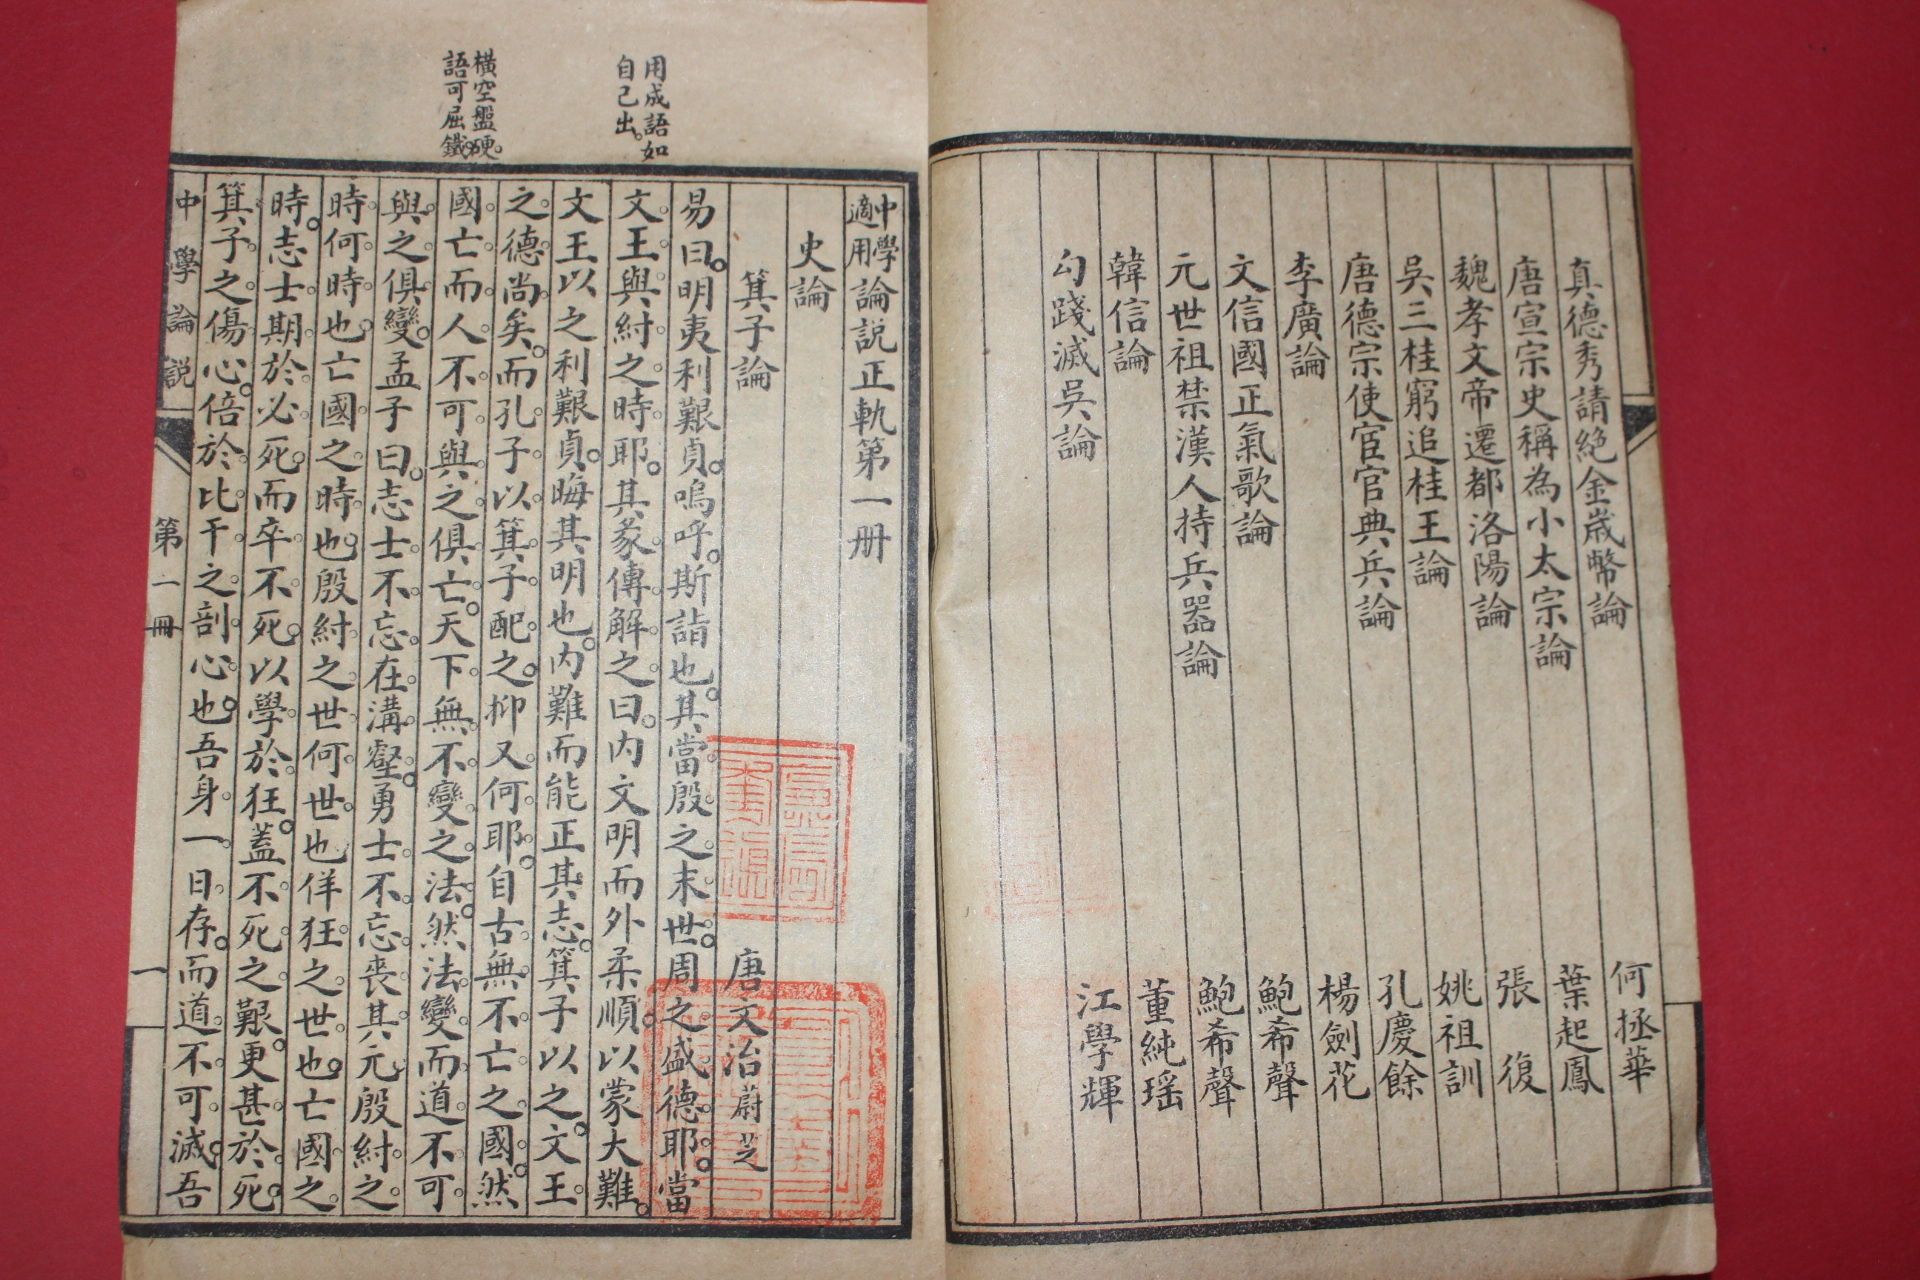 真德秀請絕金歲幣論 何拯華
唐宣宗史稱為小太宗論 葉起鳳
魏孝文帝遷都洛陽論 張復
吳三桂窮追桂王論 姚祖訓
唐德宗使宦官典兵論 孔慶餘
李廣論 楊劍花
文信國正氣歌論 鮑希聲
元世祖禁漢人持兵器論 鮑希聲
韓信論 董純瑶
勾踐滅吳論 江學輝
用成語如
自己出。
橫空盤硬。
語可屈鐵。
中學適用論説正軌第一册
史論
箕子論 唐文治蔚芝
易曰。明夷利艱貞。嗚呼。斯詣也。其當殷之末世。周之盛德耶。當
文王與紂之時耶。其彖傳解之曰。内文明而外柔順。以蒙大難。
文王以之利艱貞。晦其明也。内難而能正其志。箕子以之。文王
之德尚矣。而孔子以箕子配之。抑又何耶。自古無不亡之國。然
國亡而人不可與之俱亡。天下無不變之法。然法變而道不可
與之俱變。孟子曰。志士不忘在溝壑。勇士不忘喪其元。殷紂之
時。何時也。亡國之時也。殷紂之世。何世也。佯狂之世也。亡國之
時。志士期於必死。而卒不死。以學於狂。蓋不死之艱。更甚於死。
箕子之傷心。倍於比干之剖心也。吾身一日存。而道不可滅。吾
中學論説 第一冊 一